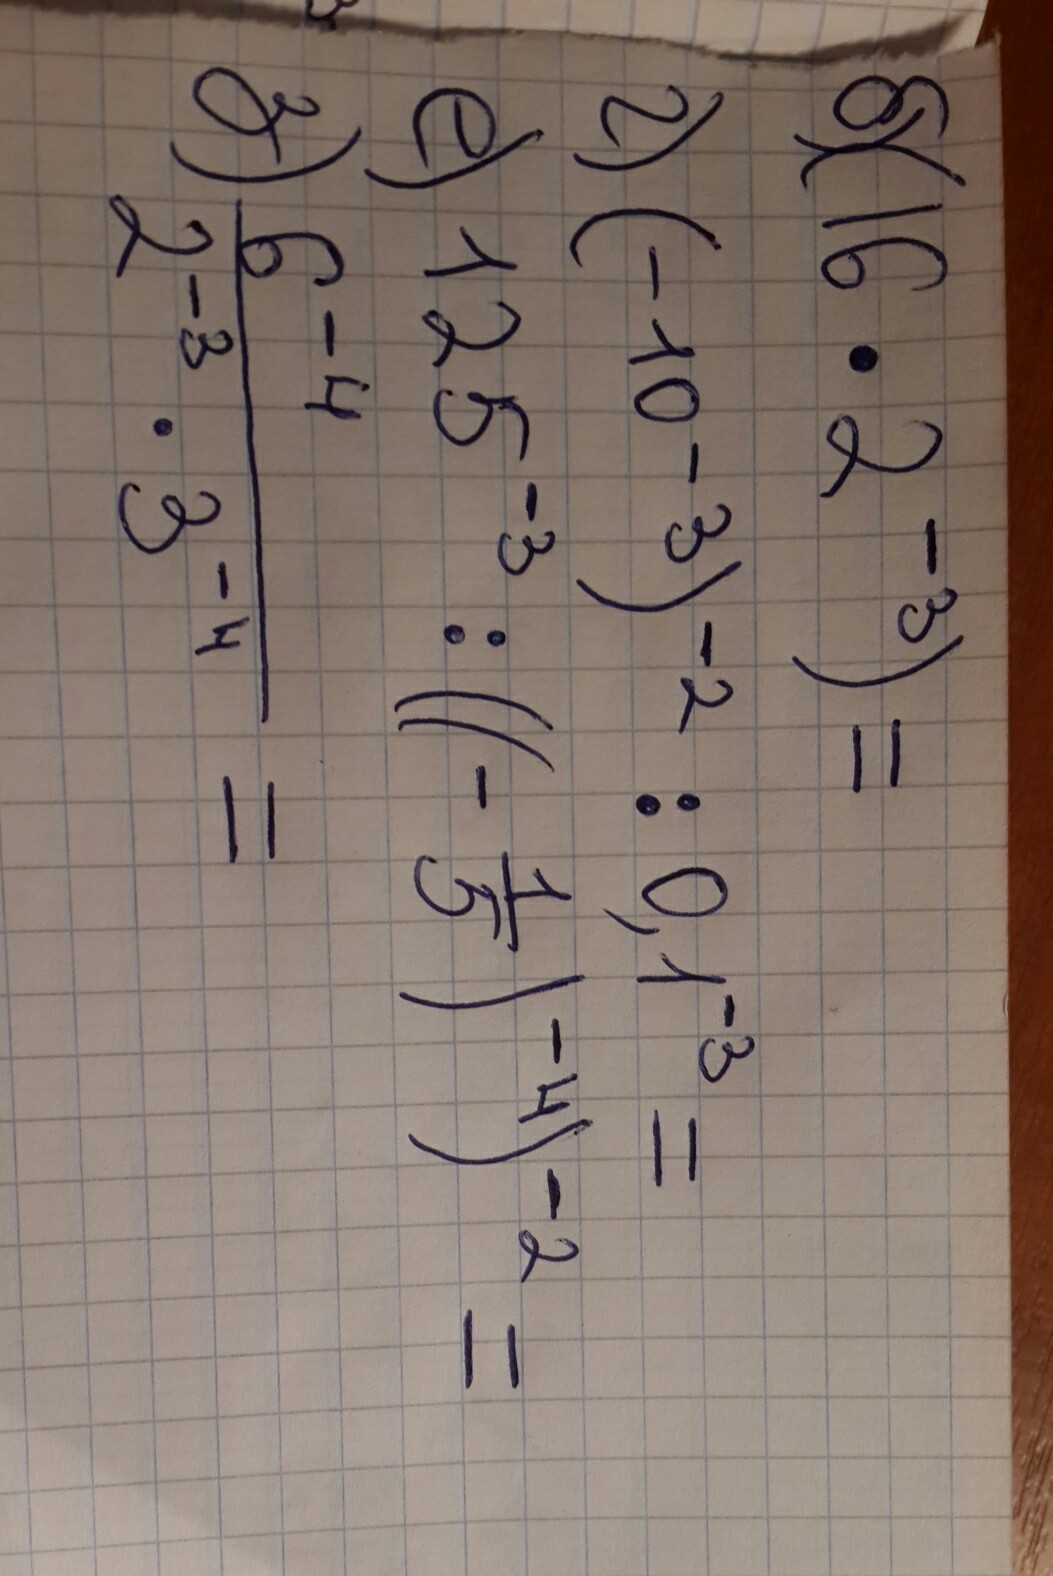 б)(16 · 2⁻³) =
г) (-10⁻³)⁻² : 0,1⁻³ =
е) 125⁻³ : ((-1/5)⁻⁴)⁻² =
з) 6⁻⁴
2⁻³ · 3⁻⁴ =